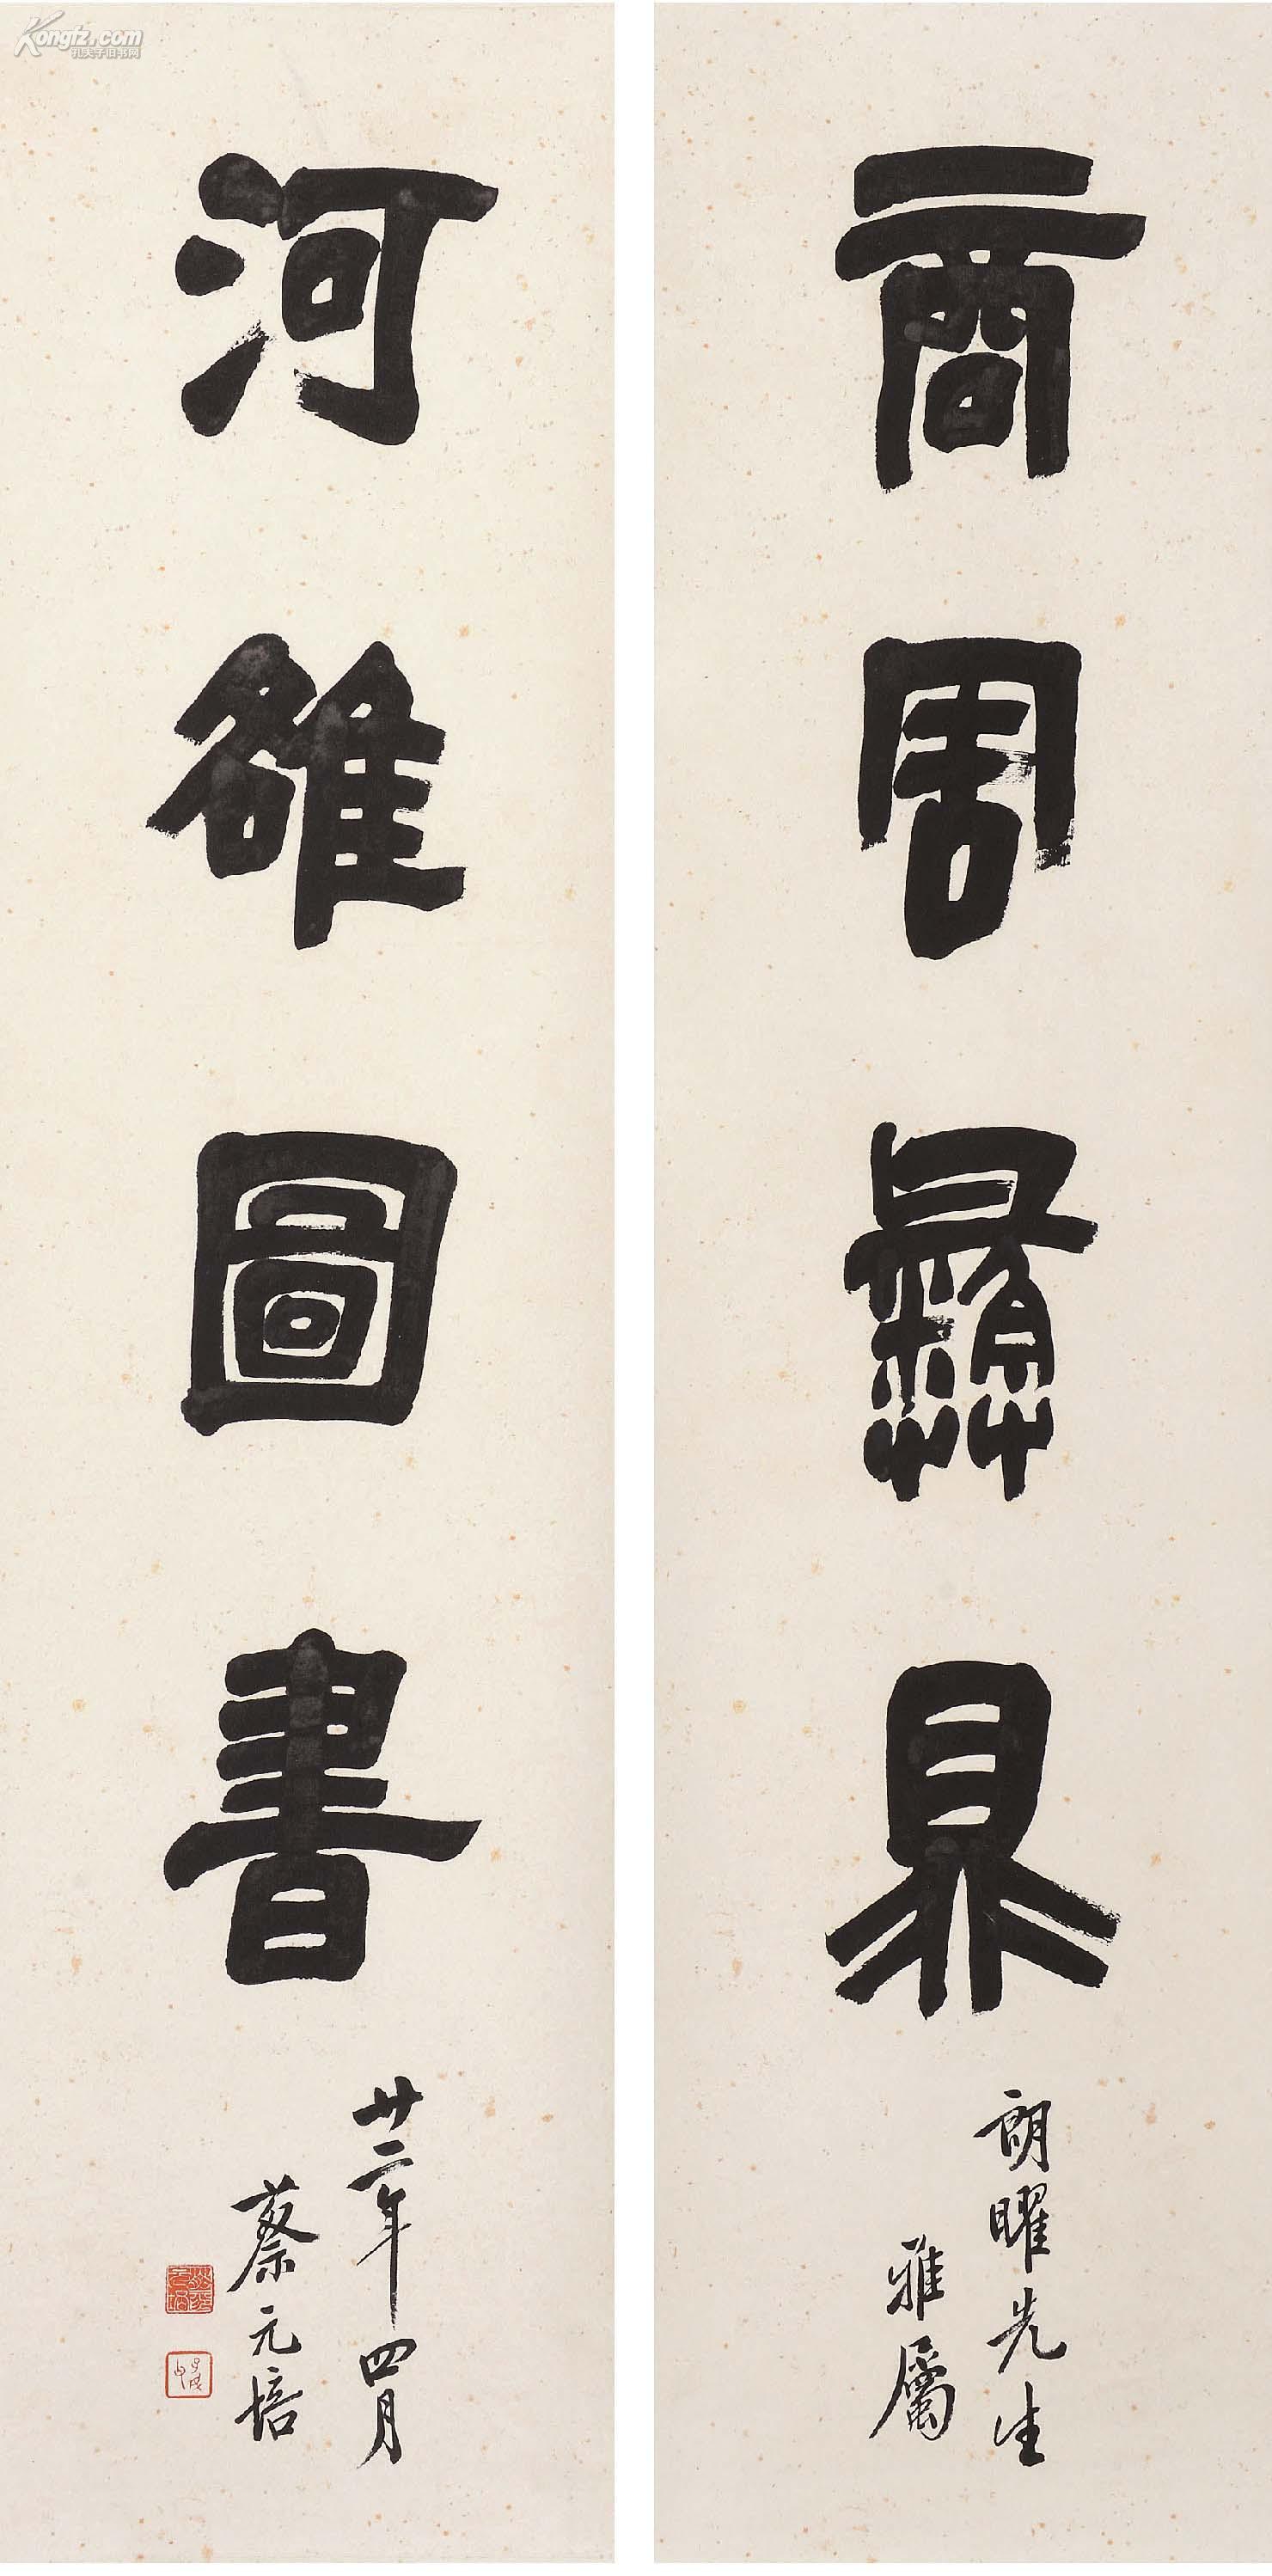 商周彝鼎
朗曜先生
雅屬
河雒圖書
廿二年四月
蔡元培
Kongfz.com
孔夫子旧书网